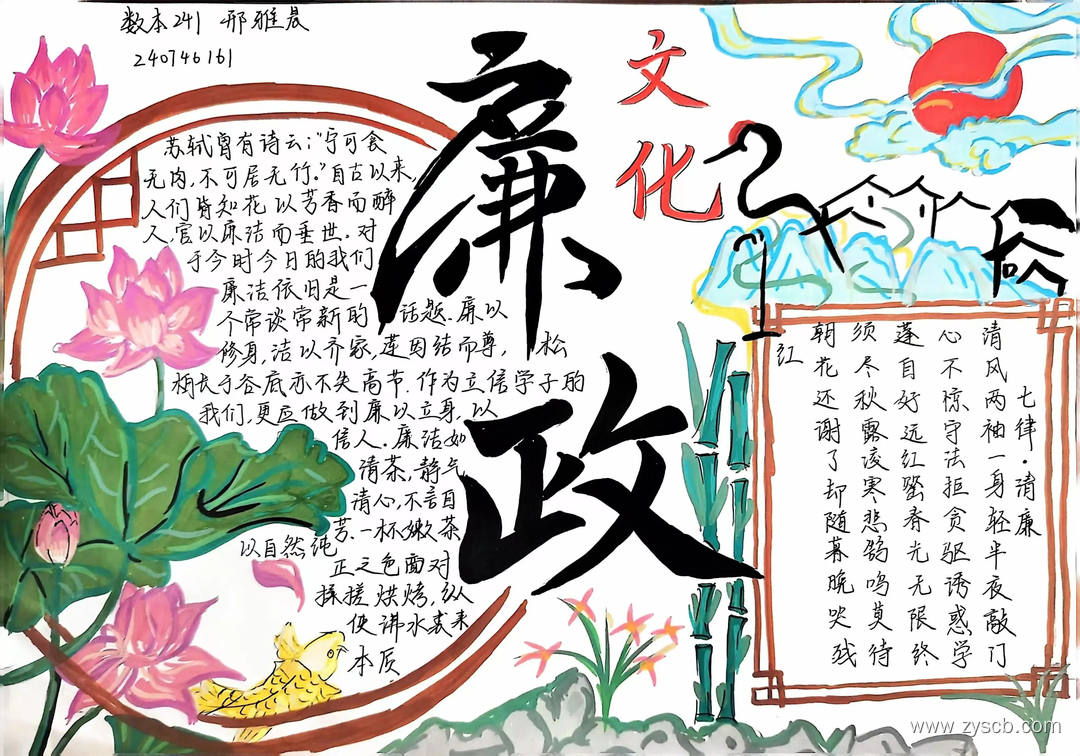 数本241 邢雅晨
240746161
廉政
文化
苏轼曾有诗云:“宁可食
无肉,不可居无竹.”自古以来,
人们皆知花以芳香而醉
人,官以廉洁而垂世.对
于今时今日的我们
廉洁依旧是一
个常谈常新的话题.廉以
修身,洁以齐家,莲因结而尊,松
梢长于谷底亦不失高节.作为立信学子的
我们,更应做到廉以立身,以
信人.廉洁如
清茶,静气
清心,不言自
芳.一杯嫩茶
以自然纯
正之色面对
揉搓烘烤,纵
使沸水袭来
本质
七律·清廉
清风两袖一身轻半夜敲门
心不惊守法拒贪驱诱惑学
莲自好远红尘春光无限终
须尽秋露凌寒悲鹤鸣莫待
朝花还谢了却随暮晚哭残
红
www.zyscb.com